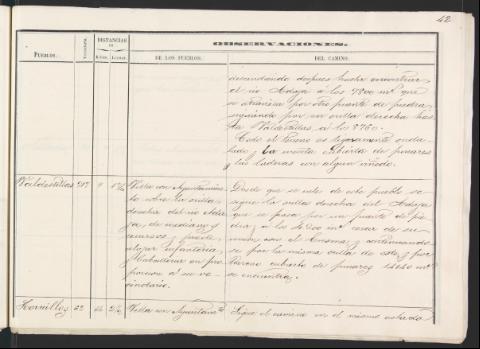 42
OBSERVACIONES.
PUEBLOS.
DISTANCIAS
DE LOS PUEBLOS.
DEL CAMINO.
descendiendo despues hasta encontrar
el rio Adaja á los 7800 mts que
se atraviesa por otro puente de piedra,
siguiendo por su orilla derecha has-
ta Valdestillas á los 8760.
Todo el terreno es ligeramente ondu-
lado y cubierto de pinares
y las laderas con algun viñedo.
Valdestillas
Villa con Ayuntamien-
to sobre la orilla
derecha del rio Ada-
ja, de medianos
recursos y puede
alojar infanteria
y Caballeria en pro-
porcion á su ve-
cindario.
Desde que se sale de este pueblo se
sigue la orilla derecha del Adaja
que se pasa por un puente de pie-
dra, á los
con el Eresma y continuando
se por la misma orilla de este y por
terreno cubierto de pinares
se encuentra
Hornillos
Villa con Ayuntamto
Sigue el camino en el mismo estado